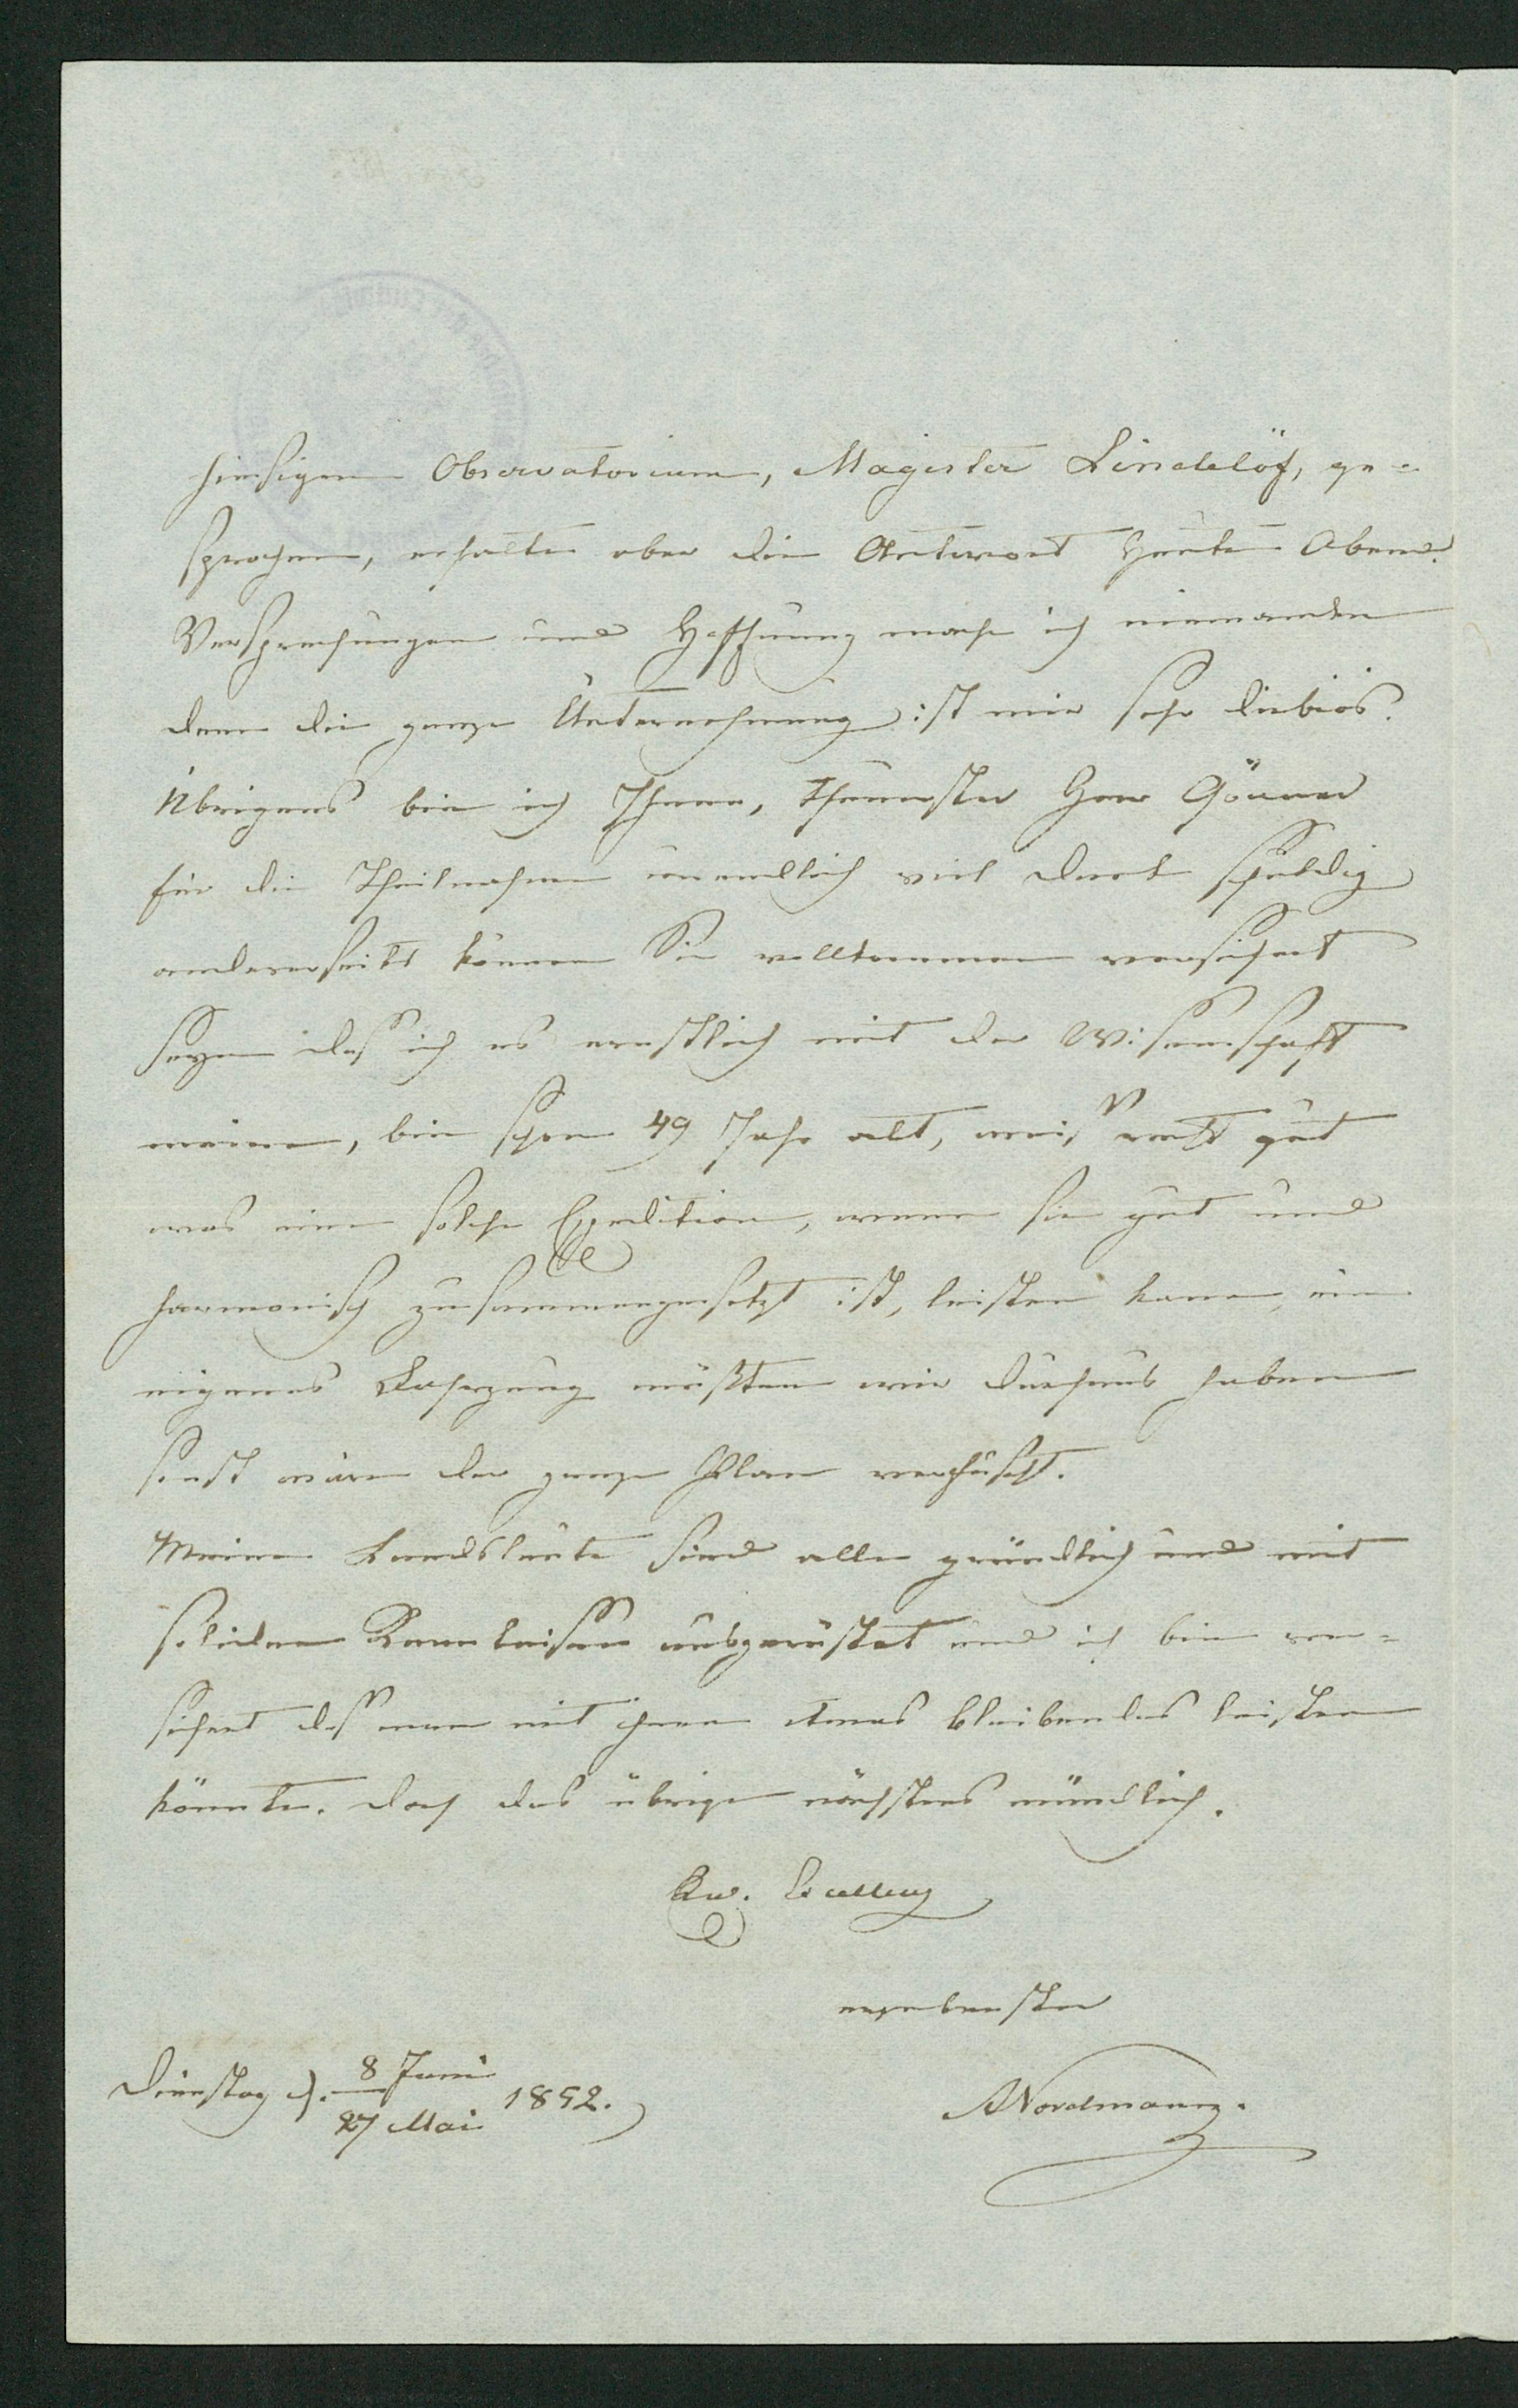 hiesigen Observatorium, Magister Lindelöf, ge-
sprochen, erhalte aber die Antwort heute Abend.
Versprechungen und Hoffnung mache ich niemanden
denn die ganze Unternehmung ist mir sehr dubiös.
Übrigens bin ich Ihnen, theuerster Herr Gönner
für die Theilnahme unendlich viel Dank schuldig
andererseits können Sie vollkommen versichert
seyn daß ich es ernstlich mit der Wissenschaft
meine, bin schon 49 Jahr alt, weiß recht gut
was eine solche Expedition, wenn sie gut und
harmonisch zusammengesetzt ist, leisten kann, ein
eigenes Fahrzeug müßten wir durchaus haben
sonst wäre der ganze Plan verpfuscht.
Meine Landsleute sind alle gründlich und mit
soliden Kenntnissen ausgerüstet und ich bin ver-
sichert daß man mit ihnen etwas bleibendes leisten
könnte. Doch das übrige nächstens mündlich.
Ew. Excellenz
ergebenster
Dienstag d. 8 Juni / 27 Mai 1852.
ANordmann.